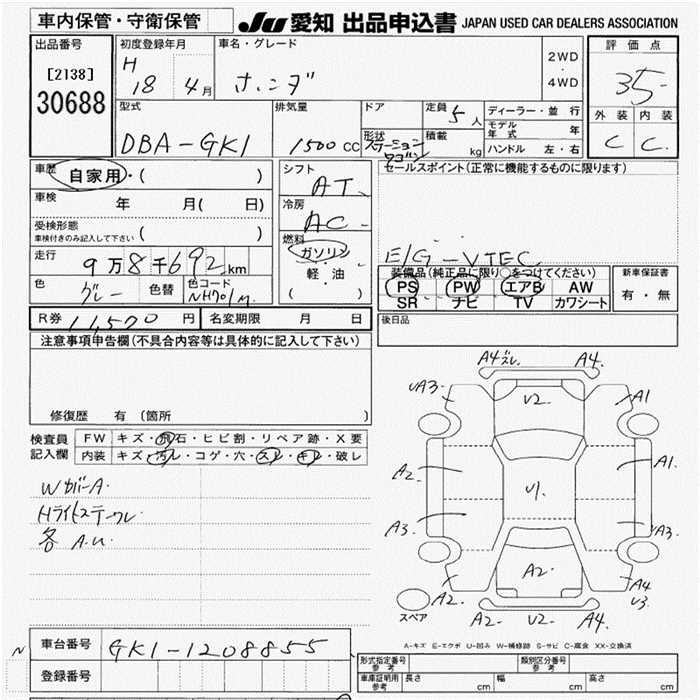 車内保管・守衛保管
JU 愛知 出品申込書 JAPAN USED CAR DEALERS ASSOCIATION
出品番号
[2138]
30688
初度登録年月
H 18 4月
車名・グレード
ホンダ
2WD
・
4WD
評価点
35-
外装 内装
C C
型式
DBA-GK1
排気量
1500 CC
ドア
形状
ステーションワゴン
定員
5人
積載
kg
ディーラー・並行
モデル年式 年
ハンドル 左・右
車歴
自家用・( )
車検
年 月( 日)
受検形態
車検付きのみ記入して下さい ( )
走行
9万8千692km
色
グレー
色替
色コード
NH701M
シフト
AT
冷房
AC
燃料
ガソリン
・
軽・油
( )
セールスポイント(正常に機能するものに限ります)
E/G-VTEC
装備品(純正品に限り○をつけてください)
PS PW エアB AW
SR ナビ TV カワシート
新車保証書
有・無
R券 11,570 円 名変期限 月 日
後日品
注意事項申告欄(不具合内容等は具体的に記入して下さい)
修復歴 有 (箇所 )
検査員
記入欄
FW キズ・飛石・ヒビ割・リペア跡・X要
内装 キズ・汚レ・コゲ・穴・スレ・キレ・破レ
WカバーA.
Hライトステークレ
各A.U.
A4ズレ A4.
UA3. V2. A1
A2. U1. A1.
A3. UA3.
A2. A2. A4
U3.
A2. V2 A4.
スペア
A-キズ E-エクボ U-凹み W-補修跡 S-サビ C-腐食 XX-交換済
N
車台番号 GK1-1208855
登録番号
形式指定番号
参考
類別区分番号
参考
車庫証明用
参考
長さ cm 幅 cm 高さ cm